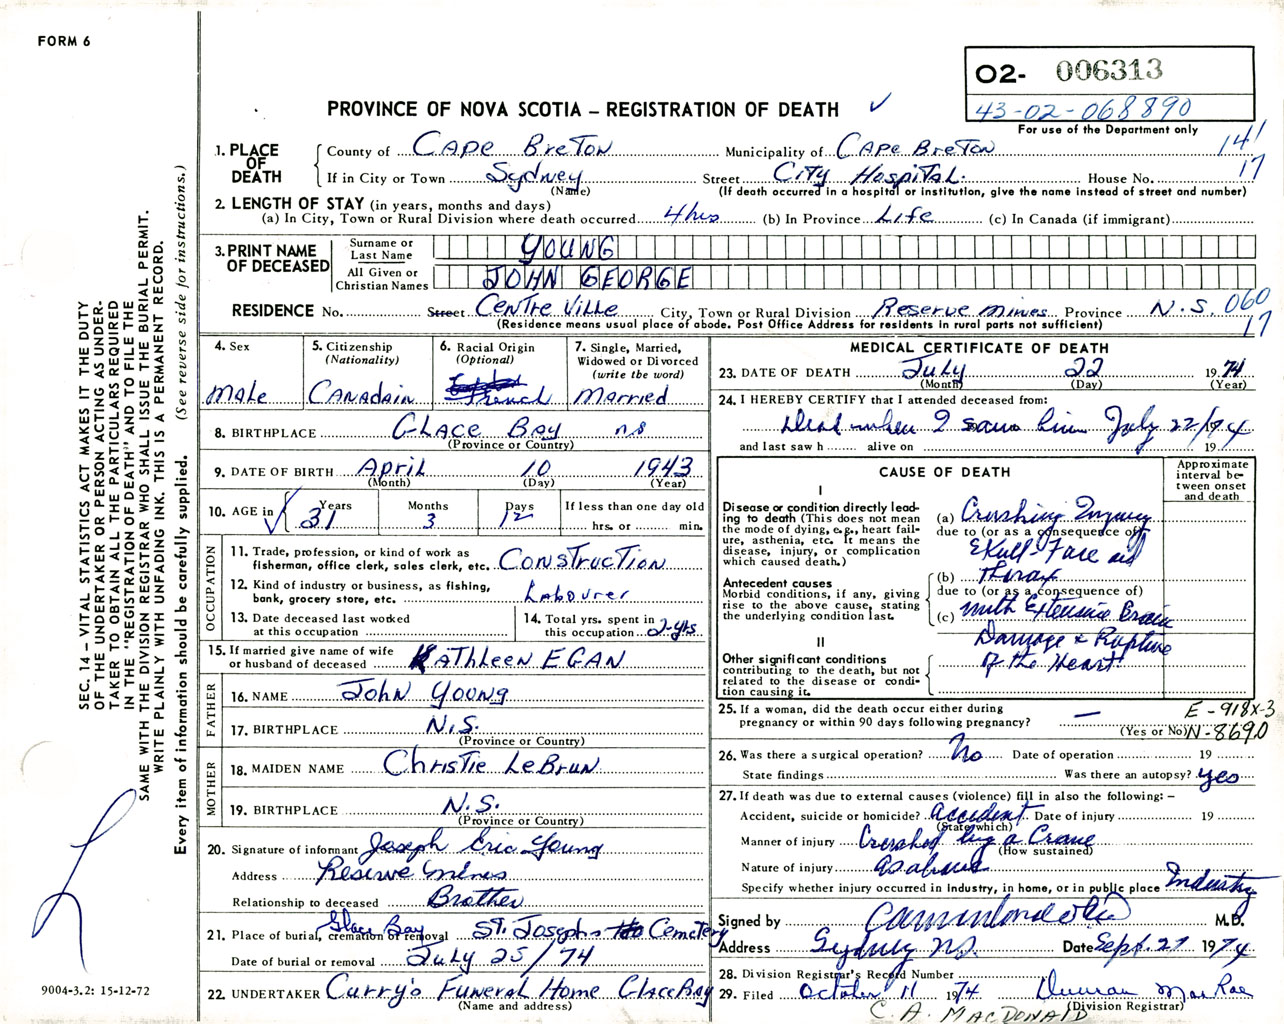 FORM 6
O2- 006313
43-02-068890
For use of the Department only
PROVINCE OF NOVA SCOTIA – REGISTRATION OF DEATH ✓
SEC. 14 – VITAL STATISTICS ACT MAKES IT THE DUTY
OF THE UNDERTAKER OR PERSON ACTING AS UNDER-
TAKER TO OBTAIN ALL THE PARTICULARS REQUIRED
IN THE "REGISTRATION OF DEATH" AND TO FILE THE
SAME WITH THE DIVISION REGISTRAR WHO SHALL ISSUE THE BURIAL PERMIT.
WRITE PLAINLY WITH UNFADING INK. THIS IS A PERMANENT RECORD.
Every item of information should be carefully supplied. (See reverse side for instructions.)
9004-3.2: 15-12-72
1. PLACE OF DEATH County of Cape Breton Municipality of Cape Breton 141
If in City or Town Sydney Street City Hospital. House No. 17
(Name) (If death occurred in a hospital or institution, give the name instead of street and number)
2. LENGTH OF STAY (in years, months and days)
(a) In City, Town or Rural Division where death occurred 4hrs (b) In Province Life (c) In Canada (if immigrant)
3. PRINT NAME OF DECEASED
Surname or Last Name YOUNG
All Given or Christian Names JOHN GEORGE
RESIDENCE No. Street Centre Ville City, Town or Rural Division Reserve Mines Province N.S. 060
(Residence means usual place of abode. Post Office Address for residents in rural parts not sufficient) 17
4. Sex Male
5. Citizenship (Nationality) Canadain
6. Racial Origin (Optional) French
7. Single, Married, Widowed or Divorced (write the word) Married
8. BIRTHPLACE Glace Bay ns
(Province or Country)
9. DATE OF BIRTH April 10 1943
(Month) (Day) (Year)
10. AGE in Years 31 Months 3 Days 12 If less than one day old hrs. or min.
OCCUPATION
11. Trade, profession, or kind of work as fisherman, office clerk, sales clerk, etc. Construction
12. Kind of industry or business, as fishing, bank, grocery store, etc. Labourer
13. Date deceased last worked at this occupation
14. Total yrs. spent in this occupation 2-yrs
15. If married give name of wife or husband of deceased Kathleen EGAN
FATHER
16. NAME John Young
17. BIRTHPLACE N.S.
(Province or Country)
MOTHER
18. MAIDEN NAME Christie LeBrun
19. BIRTHPLACE N.S.
(Province or Country)
20. Signature of informant Joseph Eric Young
Address Reserve Mines
Relationship to deceased Brother
21. Place of burial, cremation or removal Glace Bay St. Josephs Cemetery
Date of burial or removal July 25/74
22. UNDERTAKER Curry's Funeral Home Glace Bay
(Name and address)
MEDICAL CERTIFICATE OF DEATH
23. DATE OF DEATH July 22 1974
(Month) (Day) (Year)
24. I HEREBY CERTIFY that I attended deceased from:
Dead when I saw him July 22/1974
and last saw h alive on 19
CAUSE OF DEATH
Approximate interval between onset and death
I
Disease or condition directly leading to death (This does not mean the mode of dying, e.g., heart failure, asthenia, etc. It means the disease, injury, or complication which caused death.)
(a) Crushing Injury
due to (or as a consequence of)
Skull-Face and
Antecedent causes
Morbid conditions, if any, giving rise to the above cause, stating the underlying condition last.
(b) Thorax
due to (or as a consequence of)
(c) with Extensive Brain
Damage & Rupture
of the Heart
II
Other significant conditions contributing to the death, but not related to the disease or condition causing it.
25. If a woman, did the death occur either during pregnancy or within 90 days following pregnancy? — E-918X-3
(Yes or No) N-8690
26. Was there a surgical operation? No Date of operation 19
State findings Was there an autopsy? yes
27. If death was due to external causes (violence) fill in also the following: –
Accident, suicide or homicide? Accident Date of injury 19
(State which)
Manner of injury Crushed by a Crane
(How sustained)
Nature of injury as above
Specify whether injury occurred in Industry, in home, or in public place Industry
Signed by M.D.
Address Sydney NS. Date Sept. 27 1974
28. Division Registrar's Record Number
29. Filed October 11 1974 Duncan MacRae
(Division Registrar)
C. A. MACDONALD